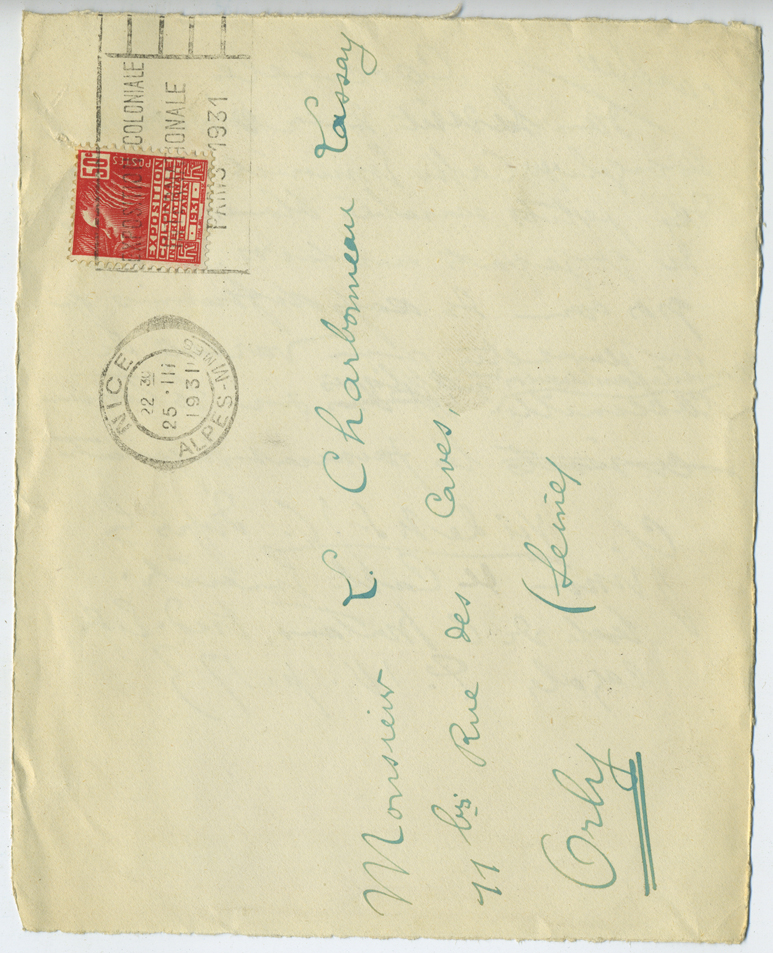 EXPOSITION COLONIALE
INTERNATIONALE
PARIS 1931
50c
POSTES
EXPOSITION
COLONIALE
INTERNATIONALE
DE PARIS
1931
NICE
22 30
25 · III
1931
ALPES-MMES
Monsieur L. Charbonneau Lassay
11 bis Rue des Caves,
Orly (Seine)